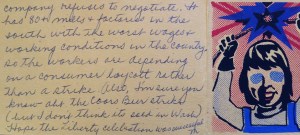 company refuses to negotiate. It
has 80+ mills & factories in the
south with the worst wages &
working conditions in the County
so the workers are depending
on a consumer boycott rather
than a strike. Also, I'm sure you
know abt the Coors Beer strike
(but I dont think its sold in Wash)
Hope the Liberty celebration was successful